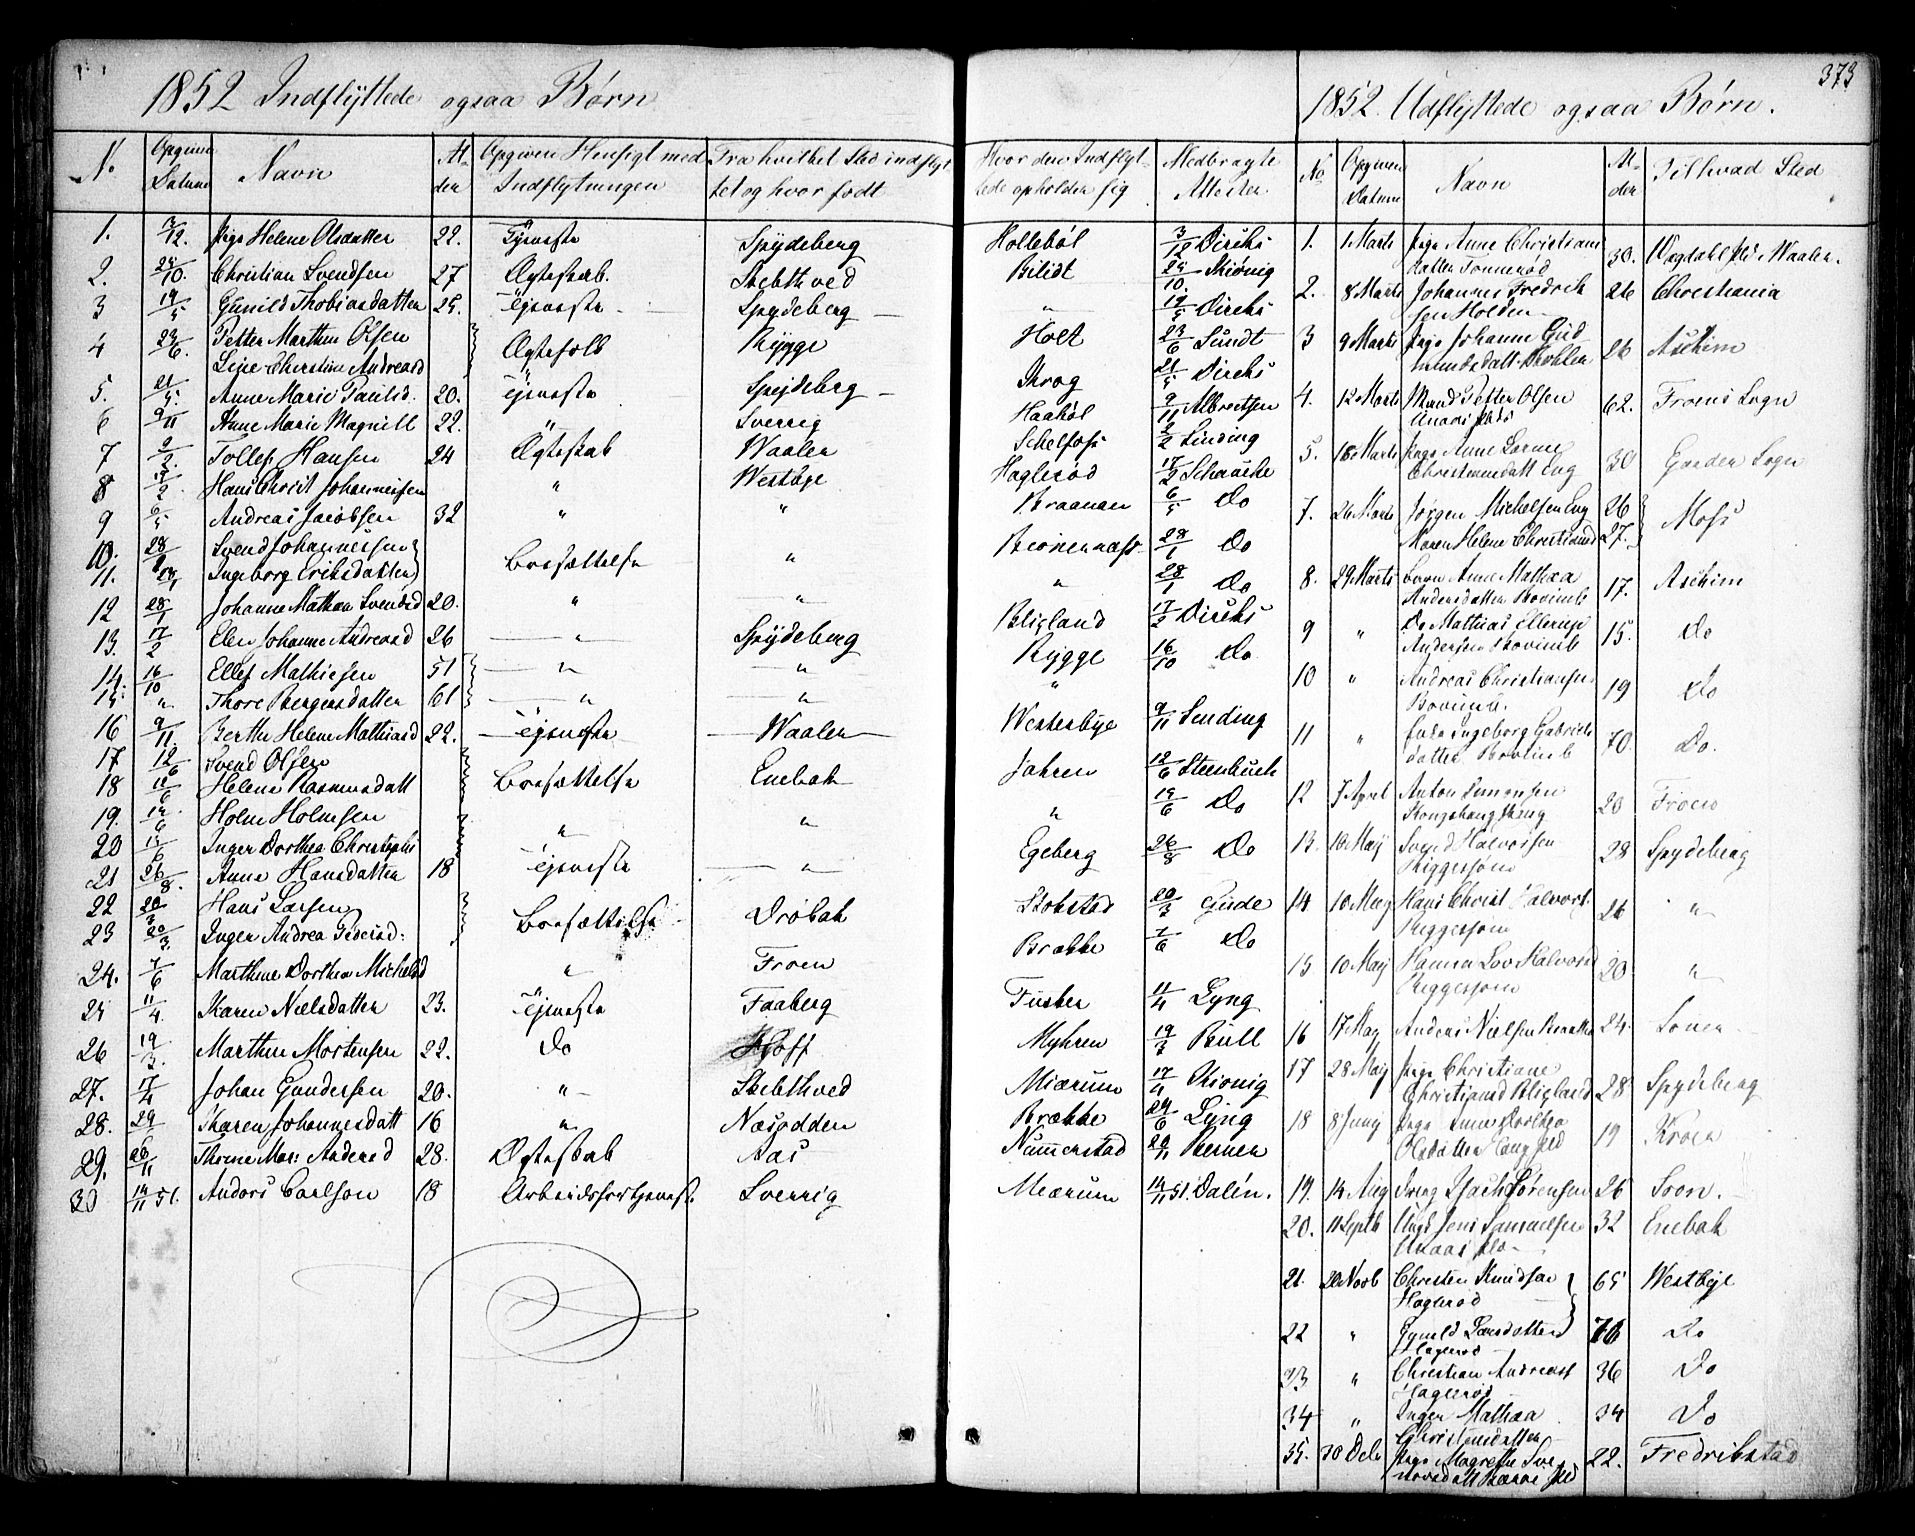 373
1852 Indflyttede ogsaa Børn
No Opgiven Datum Navn Al- der Opgiven Hensigt med Indflytningen Fra hvilket Sted indflyt- tet og hvor født Hvor den Indflyt- tede opholder sig Medbragte Attester
1. 3/12. Pige Helene Olsdatter 22. Tjeneste Spydeberg Hollebøl 3/12 Dircks
2. 25/10. Christian Svendsen 27 Ægteskab. Skibthved Bilidt 25/10. Skiönig
3 19/5 Gunild Thobiasdatter 25. Tjeneste Spydeberg " 19/5 Dircks
4 23/6. Petter Marthin Olsen Ægtefolk Rygge Holt 23/6 Sundt
Line Christine Andreasd
5. 21/5. Anne Marie Paulsd. 20. Tjeneste Spydeberg Krog 21/5 Dircks
6 9/11 Anne Marie Magnill 22. " Sverrig Haabøl 9/11 Albrectsen
7 2/2. Tollef Hansen 24 Ægteskab Waaler Schelfoss 2/2 Linding
8 17/2 Hans Christ Johannessen " Westbye Haglerød 17/2 Schaacke
9 6/5 Andreas Jacobsen 32 " " Braanaas 6/5 Do
10. 28/1 Svend Johannessen Bosættelse " 28/1 Do
11. 28/1 Ingeborg Eriksdatter " 28/1 Do
12 28/1 Johanne Mathea Svendsd 20. " "
13. 17/2 Elen Johanne Andreasd 26 " Spydeberg Bligland 17/2 Dircks
14. 16/10 Ellef Mathiesen 51 " " Rygge 16/10 Do
15. " Thore Borgersdatter 61 " " "
16 9/11 Berthe Helene Mathiasd 22. Tjeneste Waaler Westerbye 9/11 Sending
17 12/6 Svend Olsen
18 12/6 Helene Rasmusdatt Bosættelse Enebak Jahren 12/6 Steenbuch
19. 12/6 Holm Holmsen " " " 12/6 Do
20 12/6 Inger Dorthea Christophs
21 26/8. Anne Hansdatter 18 Tjeneste " Egeberg 26/8 Do
22 20/3 Hans Larsen Bosættelse Drøbak Stokstad 20/3 Gude
23 20/3. Inger Andrea
24. 7/6 Marthine Dorthea Michelsd " Froen Brække 7/6 Do
25 11/4. Karen Nielsdatter 23. Tjeneste Faaberg Fuster 11/4 Lyng
26 19/3. Marthin Mortensen 22. Do Hoff Myhren 19/3 Bull
27. 17/4 Johan Gundersen 20. " Skibthved Miærum 17/4 Skiönig
28. 29/6 Karen Johannesdatt 16 " Næsodden Brække 24/6 Lyng
29. 26/11 Thrine Mar: Andersd 28. Ægteskab Aas Nummerstad 20/11
30 14/11 51. Anders Carlson 18 Arbeidsfortjeneste Sverrig Miærum 14/11 51. Dalén.
1852. Udflyttede ogsaa Børn.
No Opgiven Datum Navn Al- der Til hvad Sted
1. 1 Marts Pige Anne Christians
datter Tonnerød 30. Vogdahl Eie Waaler.
2. 8 Marts Johannes Fredrik
sen Holden 26 Christiania
3 9 Marts Pige Johanne Gud
mundsdatt Dehlen 26 Aschim
4. 12 Marts Mand Petter Olsen
62. Froens Sogn
5. 18 Marts Pige Anne Lorine
Christiansdatt Eng 30 Garder Sogn
7. 26 Marts Jørgen Michelsen Eng 26
Maren Helene Christiansd 27. Moss
8. 29 Marts Barn Anne Mathea
Andersdatter Bovimb 17. Aschim
9 " Do Mathias Ellerup
Andersen Bovimb 15. Do
10 " Andreas Christiansen
Bovimb. 19 Do
11 " Enke Ingeborg Gabriels
datter Bovimb 70. Do.
12 7 April Anton Simonsen
Kongshaug 20 Froen
13. 10 May Svend Halvorsen
Riggersjøm 28 Spydeberg
14 10 May Hans Christ Halvors.
Riggersjøm 26 "
15 10 May Hanna Lov Halvorsd
Riggersjøm 20 "
16 17 May Andreas Nielsen 24. Soner
17 28 May Pige Christiane
Christiansd Bligland 28 Spydeberg
18 8 Juny Pige Anne Dorthea
Olsdatter 19 Kroer
19. 14 Aug Dreng Isach Sørensen 26 Soon.
20. 11 Septb Ungk Jens Samuelsen 32 Enebak
21. 20 Novb Christen Knudsen 65 Westbye
Haglerød
22 " Gunild Larsdatter 70 Do
Haglerød
23 " Christian Andreas 36 Do
Haglerød
34 " Inger Mathea 34 Do
Christensdatter
35. 30 Deb Pige Magrethe 22. Fredrikstad